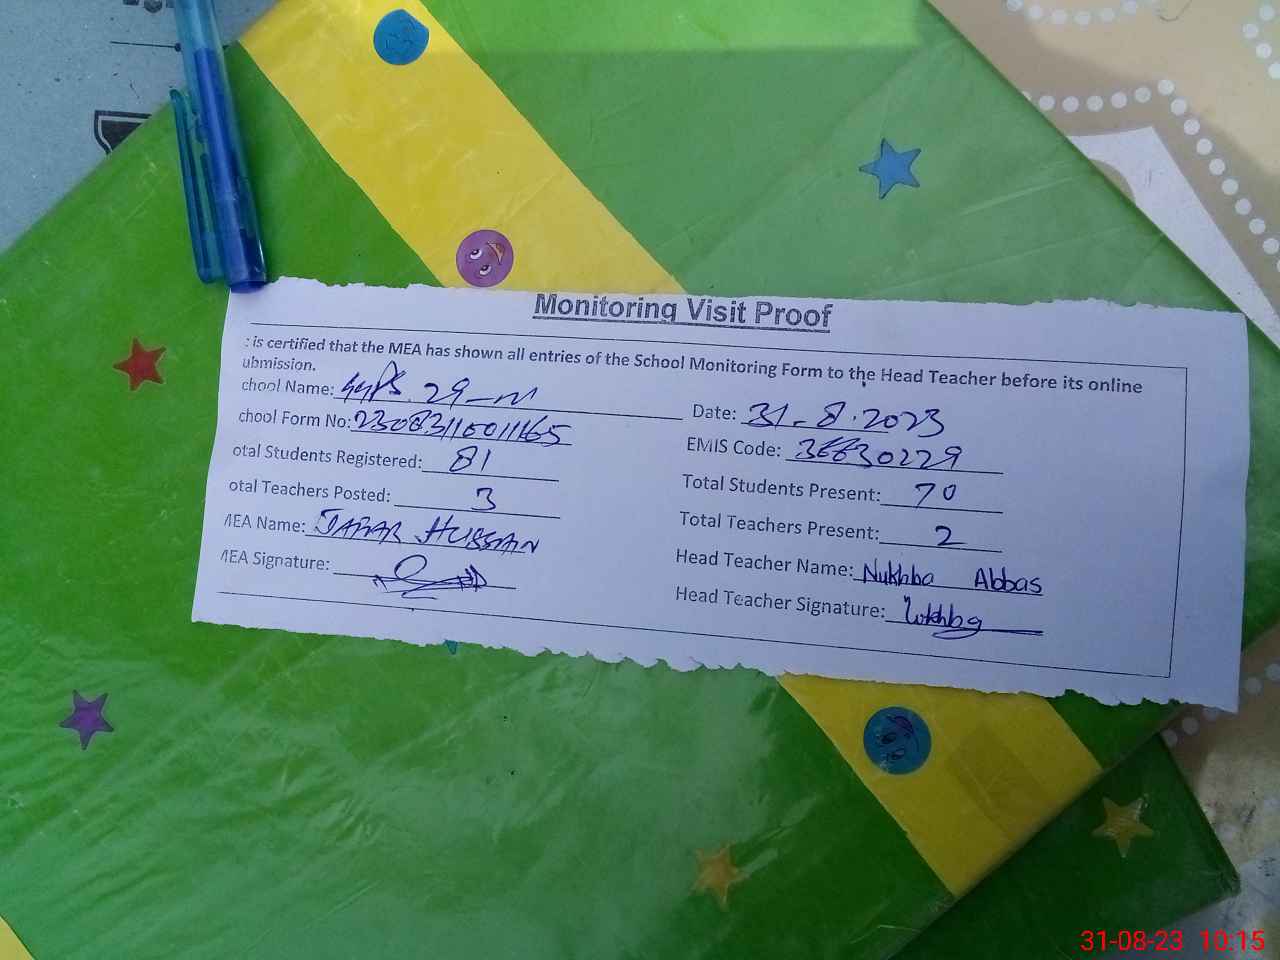 Monitoring Visit Proof
: is certified that the MEA has shown all entries of the School Monitoring Form to the Head Teacher before its online
ubmission.
chool Name: GGPS. 29-M
Date: 31-8.2023
chool Form No: 23083110011165
EMIS Code: 36630229
otal Students Registered: 81
Total Students Present: 70
otal Teachers Posted: 3
Total Teachers Present: 2
MEA Name: JABAR HUSSAIN
Head Teacher Name: Nukhba Abbas
MEA Signature:
Head Teacher Signature: Nukhba
31-08-23 10:15